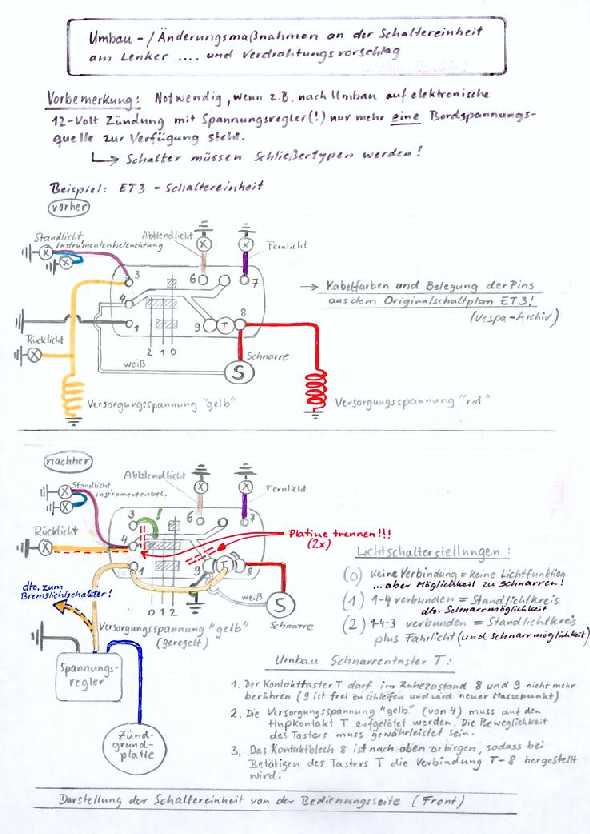 Umbau-/Änderungsmaßnahmen an der Schaltereinheit
am Lenker .... und Verdrahtungsvorschlag
Vorbemerkung: Notwendig, wenn z.B. nach Umbau auf elektronische
12-Volt Zündung mit Spannungsregler(!) nur mehr eine Bordspannungs-
quelle zur Verfügung steht.
Schalter müssen Schließertypen werden!
Beispiel: ET3 - Schaltereinheit
vorher
Standlicht
Instrumentenbeleuchtung
Abblendlicht
Fernlicht
3
6
7
4
1
9
T
8
2 1 0
Kabelfarben und Belegung der Pins
aus dem Originalschaltplan ET3!
(Vespa-Archiv)
Rücklicht
weiß
S
Schnarre
Versorgungsspannung "gelb"
Versorgungsspannung "rot"
nachher
Standlicht
Instrumentenbel.
Abblendlicht
Fernlicht
Rücklicht
3
!
6
7
4
1
9
T
8
0 1 2
Platine trennen!!!
(2x)
weiß
S
Schnarre
dto. zum
Bremslichtschalter!
Versorgungsspannung "gelb"
(geregelt)
Spannungs-
regler
Zünd-
grund-
platte
Lichtschalterstellungen:
(0) keine Verbindung = keine Lichtfunktion
...aber Möglichkeit zu Schnarren!
(1) 1-4 verbunden = Standlichtkreis
dto. Schnarrmöglichkeit
(2) 1-4-3 verbunden = Standlichtkreis
plus Fahrlicht (und Schnarrmöglichkeit)
Umbau Schnarrentaster T:
1. Der Kontakttaster T darf im Ruhezustand 8 und 9 nicht mehr
berühren (9 ist frei zu schleifen und wird neuer Massepunkt)
2. Die Versorgungsspannung "gelb" (von 4) muss auf den
Tinpkontakt T aufgelötet werden. Die Beweglichkeit
des Tasters muss gewährleistet sein.
3. Das Kontaktblech 8 ist nach oben zu biegen, sodass bei
Betätigen des Tasters T die Verbindung T-8 hergestellt
wird.
Darstellung der Schaltereinheit von der Bedienungsseite (Front)